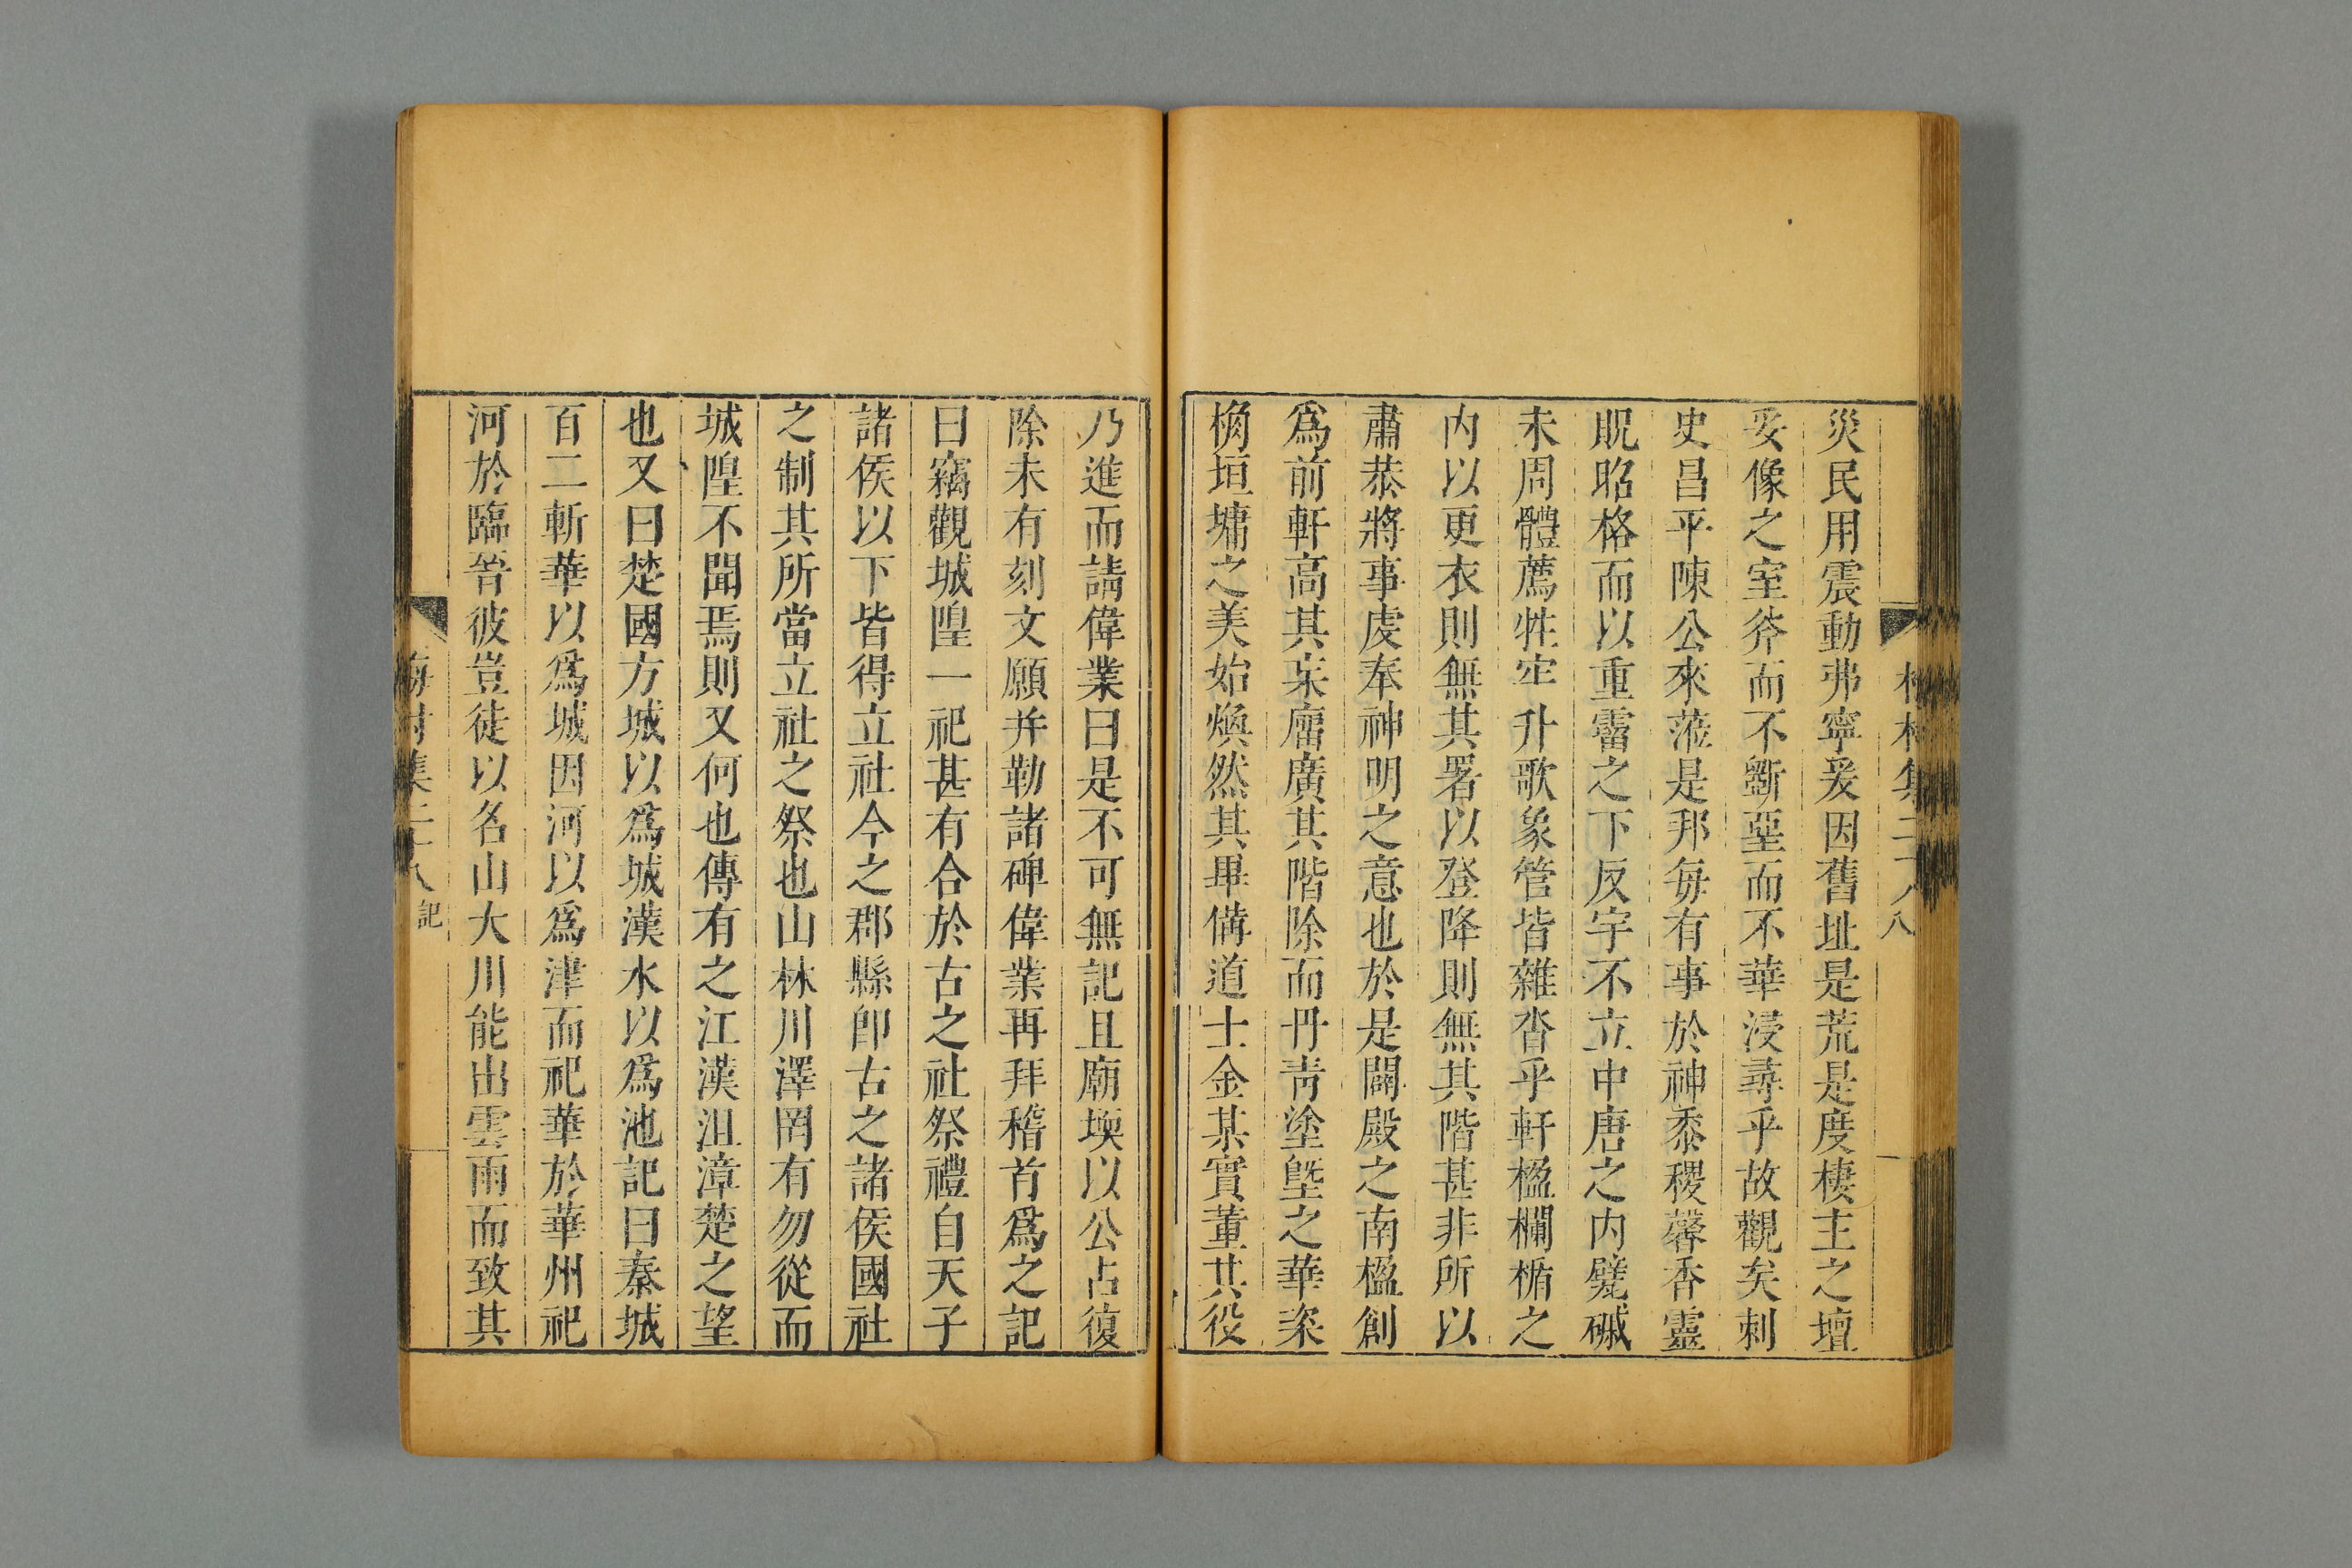 災民用震動弗寧爰因舊址是荒是度棲主之壇
妥像之室卷而不斲堊而不華浸尋乎故觀矣刺
史昌平陳公來蒞是邦每有事於神黍稷馨香靈
貺昭格而以重霤之下反宇不立中唐之内甓磩
未周體薦牲牢升歌象管皆雜沓乎軒楹欄楯之
内以更衣則無其署以登降則無其階甚非所以
肅恭將事虔奉神明之意也於是闢殿之南楹創
爲前軒高其宋廇廣其階除而丹靑塗墍之華粢
桷垣墉之美始煥然其畢備道士金某實董其役
乃進而請偉業曰是不可無記且廟堧以公占復
除未有刻文願并勒諸碑偉業再拜稽首爲之記
曰竊觀城隍一祀甚有合於古之社祭禮自天子
諸侯以下皆得立社今之郡縣卽古之諸侯國社
之制其所當立社之祭也山林川澤罔有勿從而
城隍不聞焉則又何也傳有之江漢沮漳楚之望
也又曰楚國方城以爲城漢水以爲池記曰秦城
百二斬華以爲城因河以爲津而祀華於華州祀
河於臨晉彼豈徒以名山大川能出雲雨而致其
梅村集二十八
記
八